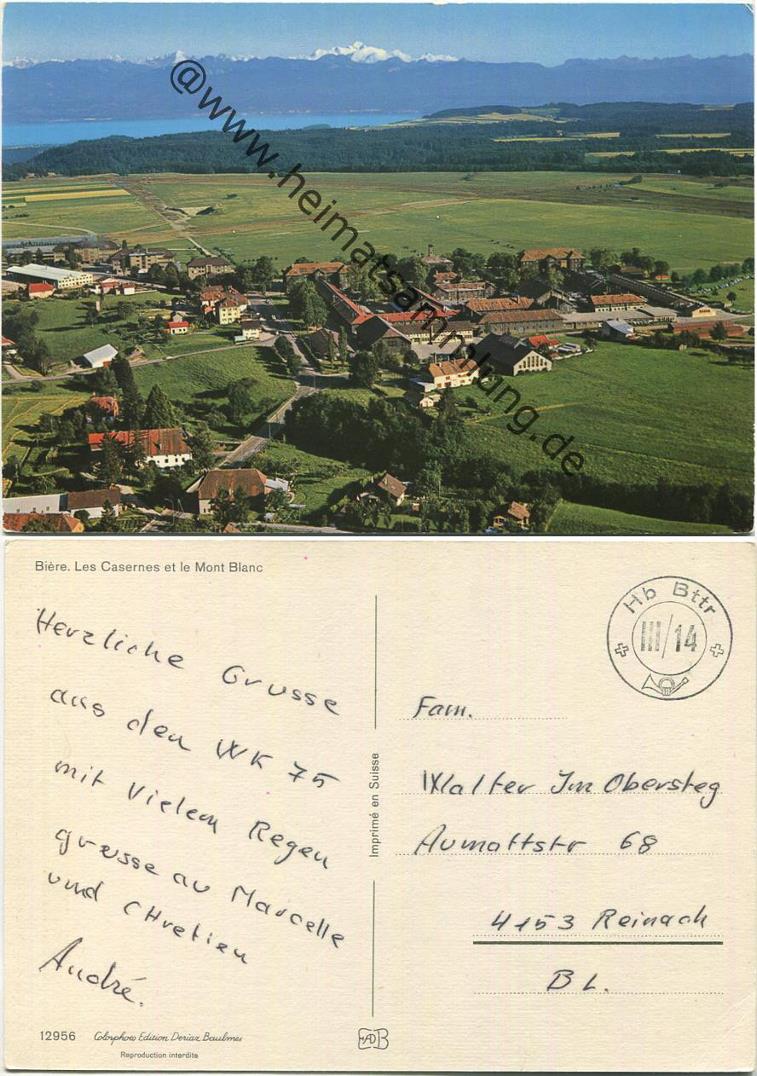 @www.heimatsammlung.de
Bière. Les Casernes et le Mont Blanc
Herzliche Grüsse
aus den WK 75
mit Vielem Regen
grüsse au Marcelle
und CHretien
André.
Hb Bttr
III/14
Fam.
Walter Im Obersteg
Aumattstr 68
4153 Reinach
BL.
Imprimé en Suisse
12956 Colorphoto Edition Deriaz Baulmes
Reproduction interdite